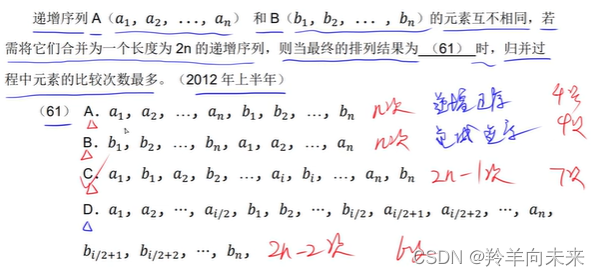 递增序列 A（a₁，a₂，...，aₙ）和 B（b₁，b₂，...，bₙ）的元素互不相同，若
需将它们合并为一个长度为 2n 的递增序列，则当最终的排列结果为 （61） 时，归并过
程中元素的比较次数最多。（2012 年上半年）
（61） A. a₁，a₂，…，aₙ，b₁，b₂，…，bₙ n次 递增正序 4次
B. b₁，b₂，…，bₙ，a₁，a₂，…，aₙ n次 4次
C. a₁，b₁，a₂，b₂，…，aᵢ，bᵢ，…，aₙ，bₙ 2n-1次 7次
D. a₁，a₂，…，a_{i/2}，b₁，b₂，…，b_{i/2}，a_{i/2+1}，a_{i/2+2}，…，aₙ，
b_{i/2+1}，b_{i/2+2}，…，bₙ， 2n-2次 6次
CSDN @羚羊向未来